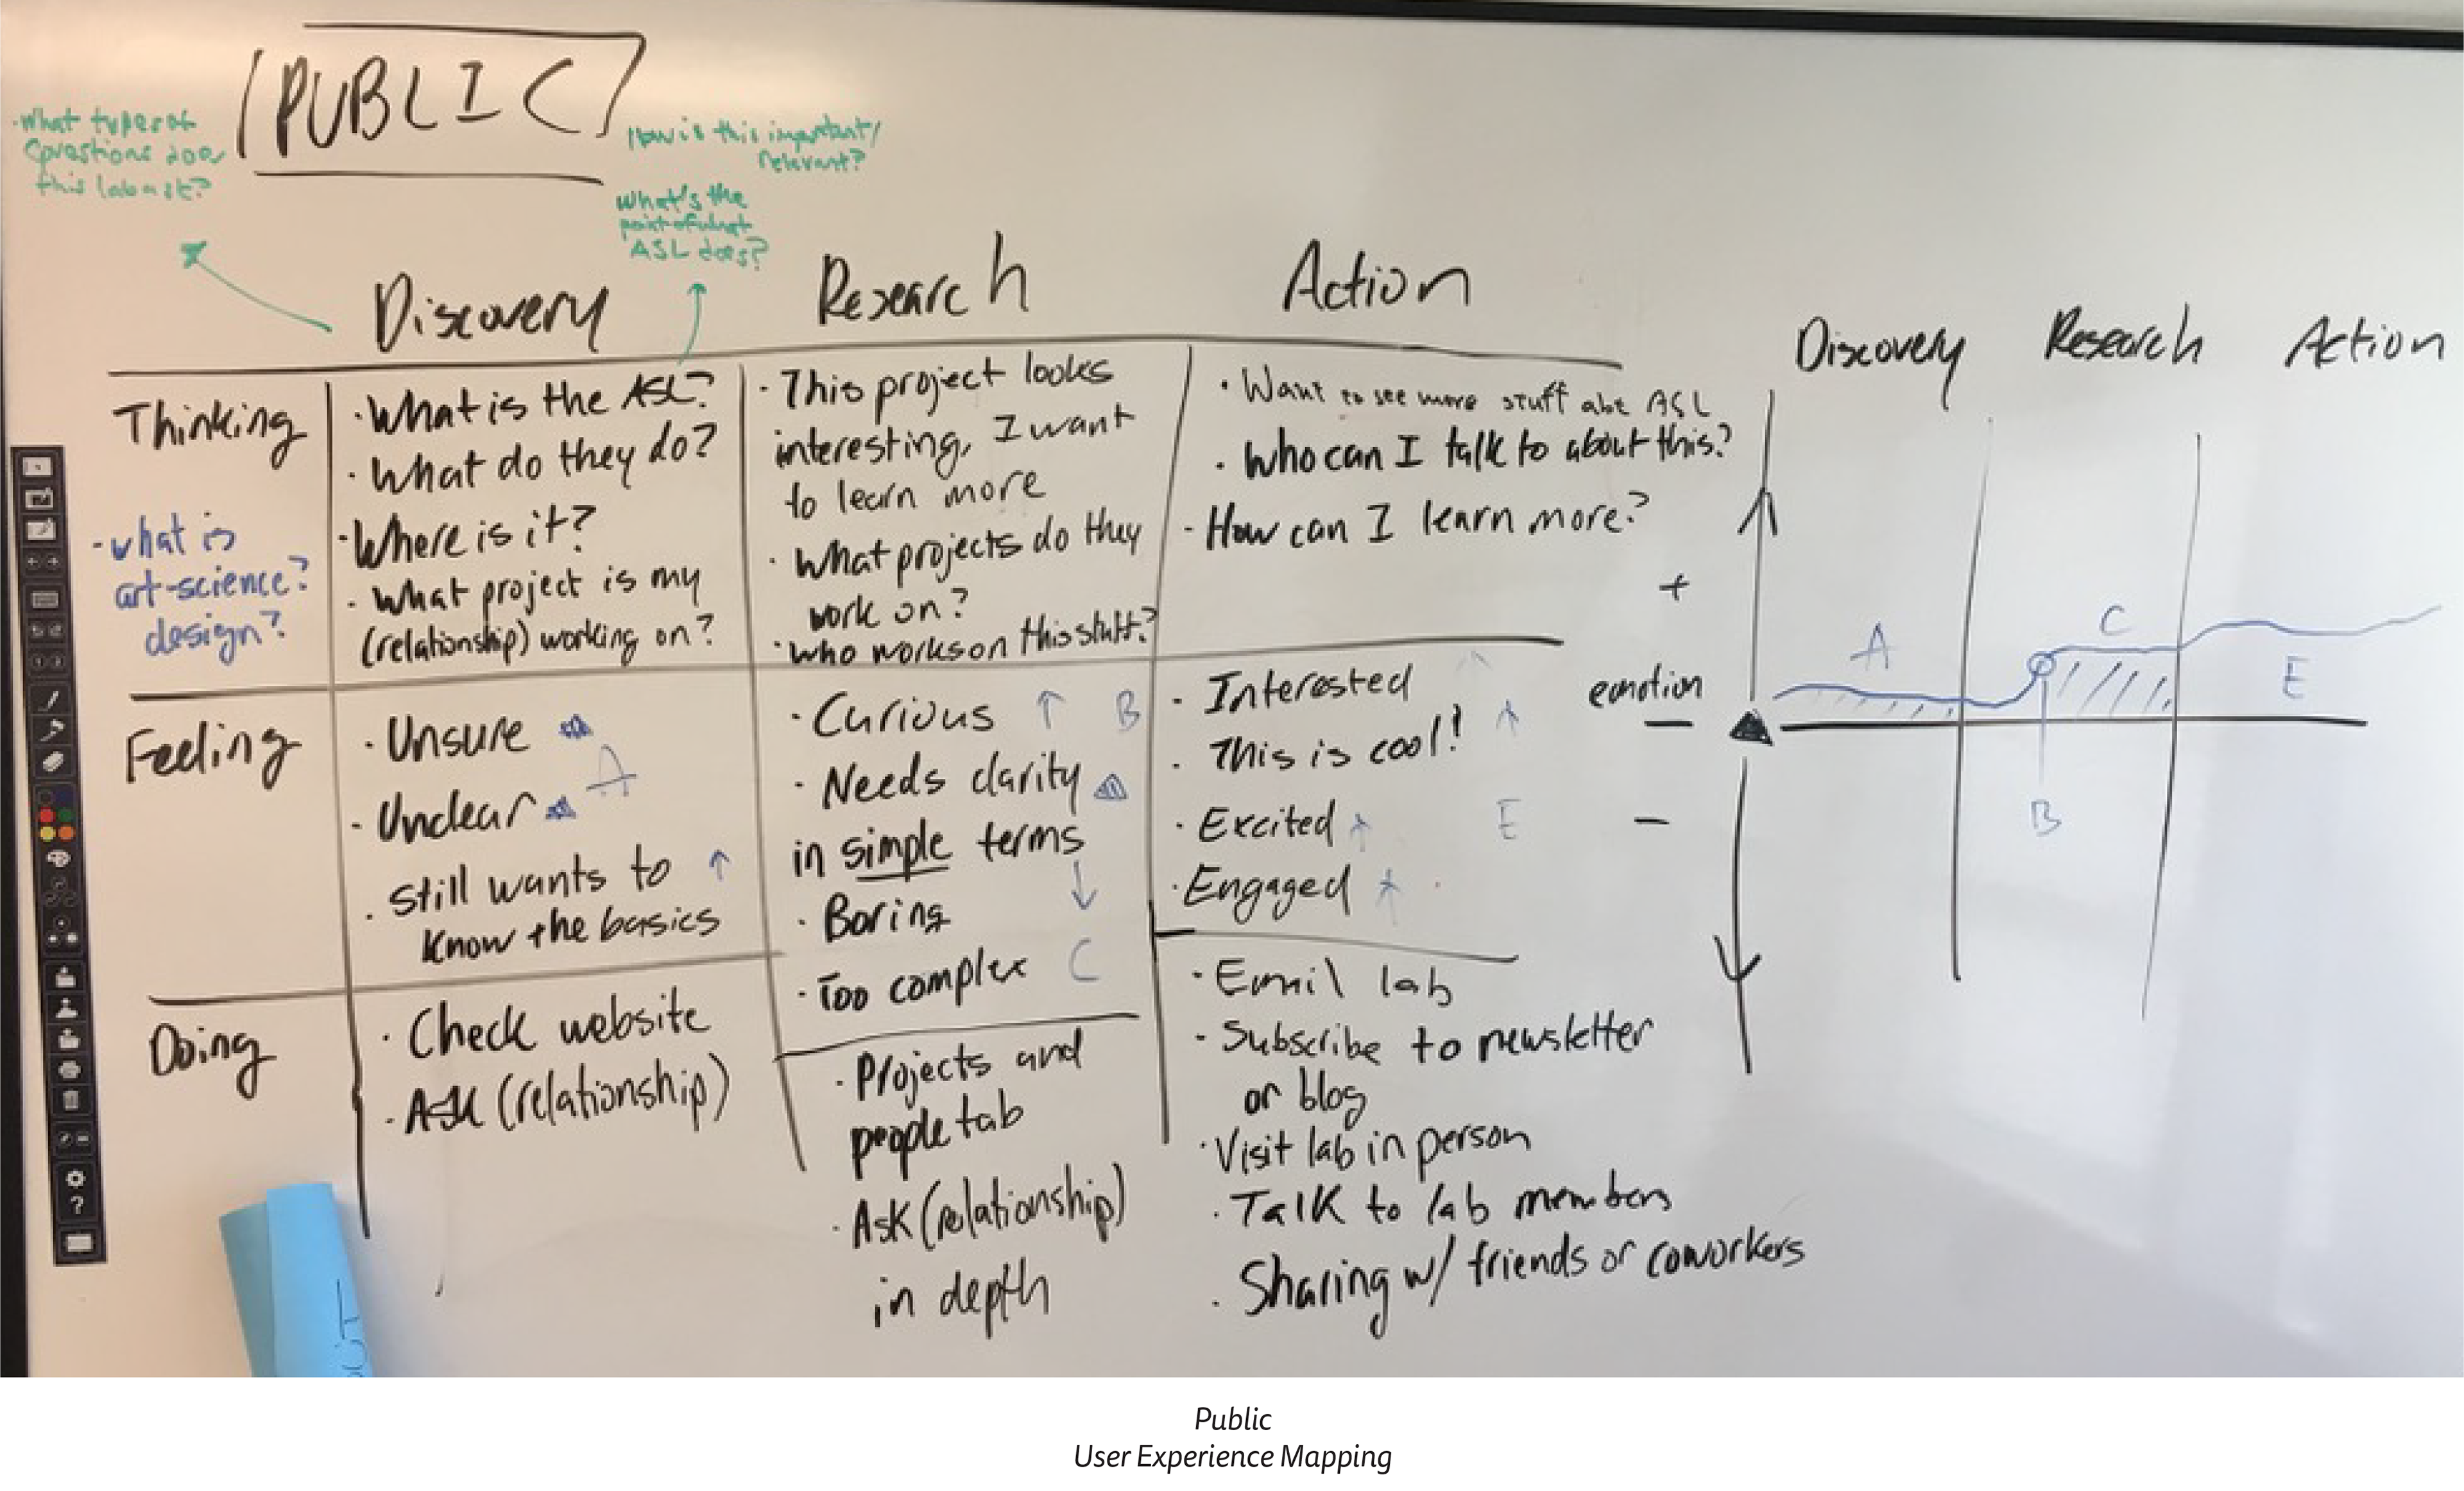 PUBLIC
·What types of
Questions does
this lab ask?
How is this important/
relevant?
What's the
point of what
ASL does?
Discovery
Research
Action
Thinking
·what is
art-science?
design?
·What is the ASL?
·What do they do?
·Where is it?
·What project is my
(relationship) working on?
·This project looks
interesting, I want
to learn more
·What projects do they
work on?
·who works on this stuff?
·Want to see more stuff abt ASL
·Who can I talk to about this?
·How can I learn more?
Feeling
·Unsure
·Unclear
A
·Still wants to
know the basics
·Curious ↑ B
·Needs clarity
in simple terms
·Boring ↓
·Too complex C
·Interested
·This is cool! ↑
·Excited ↑ E
·Engaged ↑
Doing
·Check website
·Ask (relationship)
·Projects and
people tab
·Ask (relationship)
in depth
·Email lab
·Subscribe to newsletter
or blog
·Visit lab in person
·Talk to lab members
·Sharing w/ friends or coworkers
Discovery Research Action
+
emotion
—
–
A
B
C
E
?
Public
User Experience Mapping